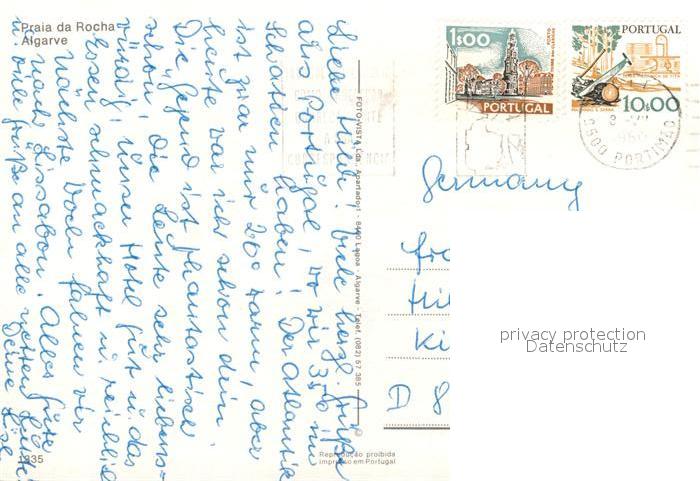 Praia da Rocha
Algarve
Liebe Heidi! Viele herzl. Grüße
aus Portugal, wo wir 35° im
Schatten haben! Der Atlantik
ist zwar nur 20° warm, aber
war ich schon drin.
Die Gegend ist phantastisch
schön! Die Leute sehr liebens=
würdig! Unser Hotel gut u. das
Essen schmackhaft u. reichlich
Nächste Woche fahren wir
nach Lissabon. Alles Gute
u. viele Grüße an alle
Deine
1335
FOTO-VISTA Lda. Apartado 1 - 8400 Lagoa - Algarve - Telef. (082) 57 385
Reprodução proibida
Impresso em Portugal
1$00
PORTO
TORRE DOS CLÉRIGOS
PORTUGAL
PORTUGAL
10$00
8500 PORTIMÃO
Germany
D 8
privacy protection
Datenschutz